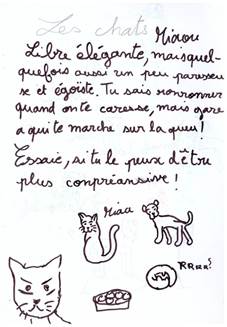 Les chats
Miaou
Libre élégante, mais quel-
quefois aussi un peu paresseu
se et égoïste. Tu sais ronronner
quand on te caresse, mais gare
a qui te marche sur la queu!
Essaie, si tu le peux d'être
plus conpréansive!
Miau
RRRR!